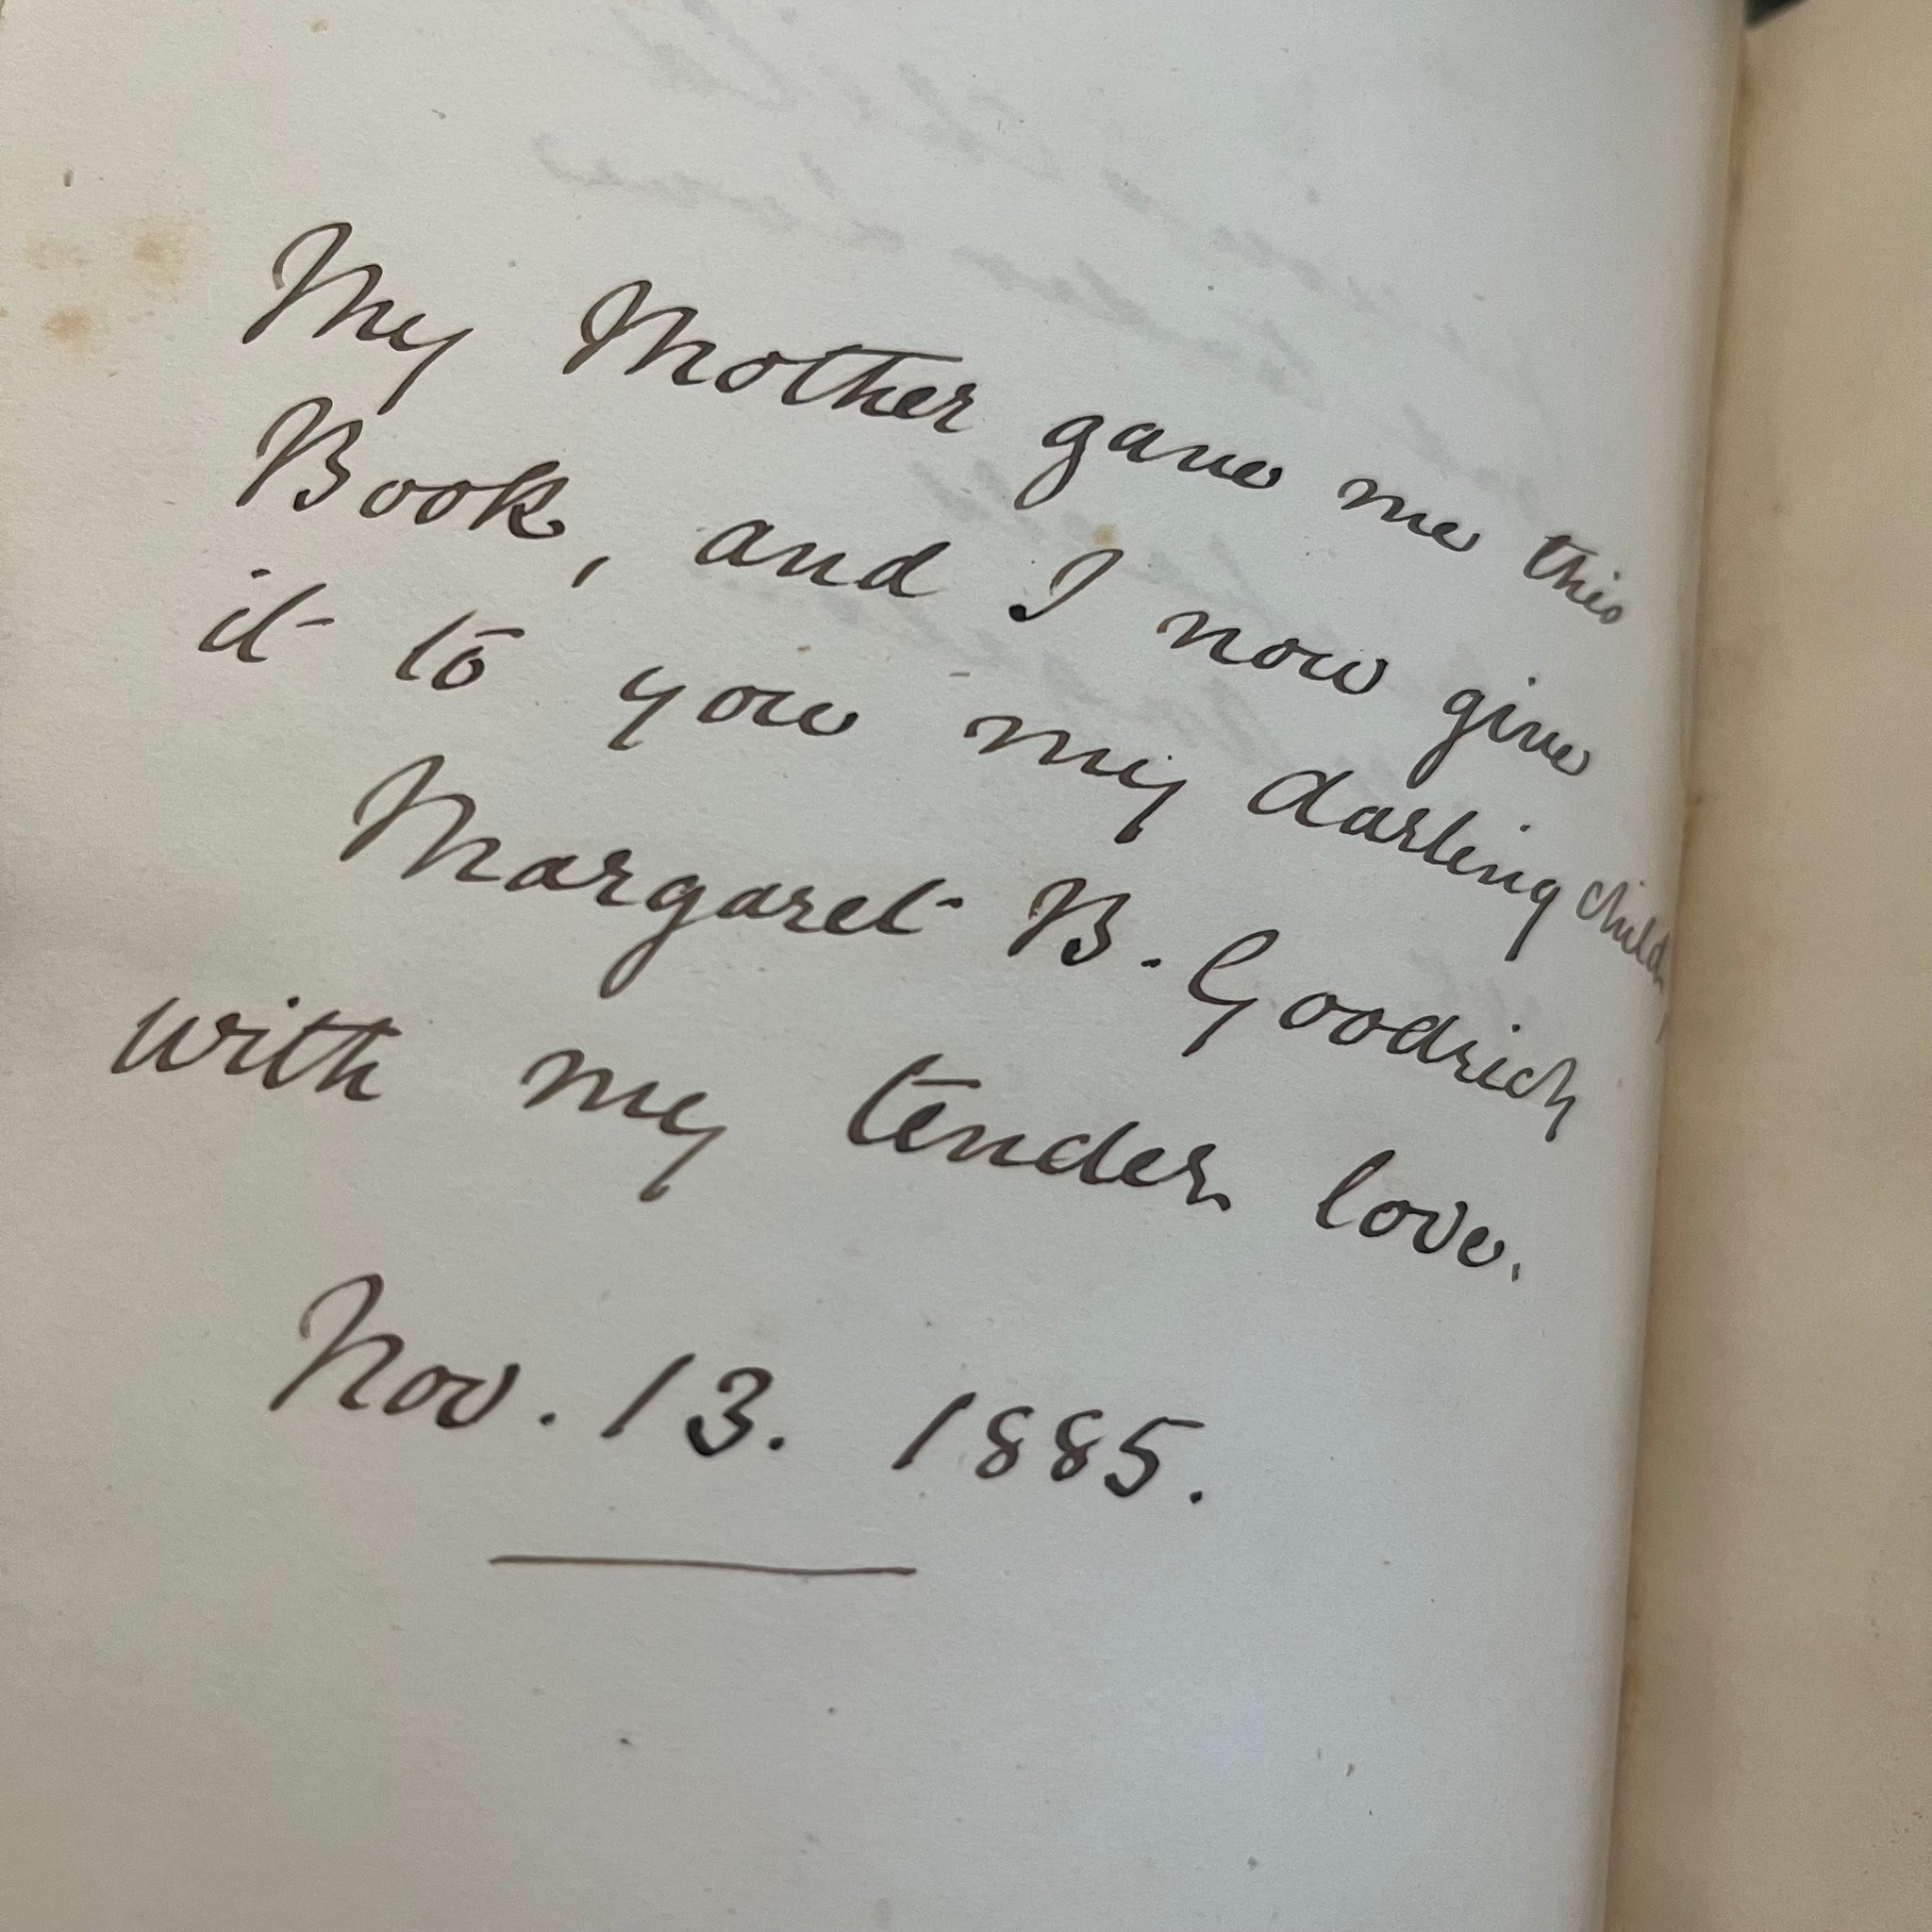 My Mother gave me this
Book, and I now give
it to you my darling child,
Margaret B. Goodrich
with my tender love.
Nov. 13. 1885.